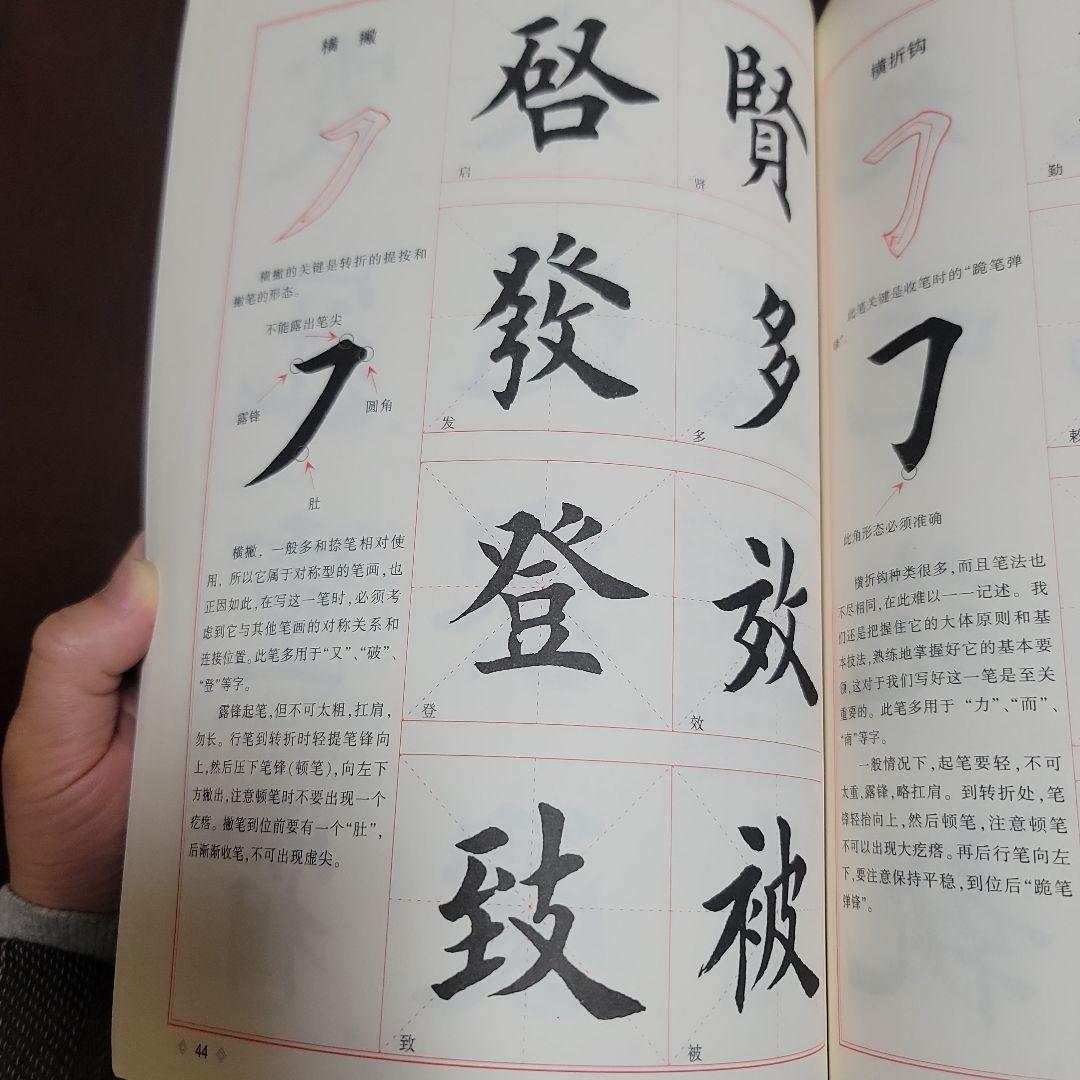 横 撇
横撇的关键是转折的提按和
撇笔的形态。
不能露出笔尖
露锋
圆角
肚
横撇，一般多和捺笔相对使
用，所以它属于对称型的笔画，也
正因如此，在写这一笔时，必须考
虑到它与其他笔画的对称关系和
连接位置。此笔多用于“又”、“破”、
“登”等字。
露锋起笔，但不可太粗，扛肩，
勿长。行笔到转折时轻提笔锋向
上，然后压下笔锋(顿笔)，向左下
方撇出，注意顿笔时不要出现一个
疙瘩。撇笔到位前要有一个“肚”，
后渐渐收笔，不可出现虚尖。
44
啓
启
賢
贤
發
发
多
多
登
登
效
效
致
致
被
被
横折钩
此笔关键是收笔时的“跪笔弹
锋”。
此角形态必须准确
横折钩种类很多，而且笔法也
不尽相同，在此难以一一记述。我
们还是把握住它的大体原则和基
本技法，熟练地掌握好它的基本要
领，这对于我们写好这一笔是至关
重要的。此笔多用于“力”、“而”、
“南”等字。
一般情况下，起笔要轻，不可
太重，露锋，略扛肩。到转折处，笔
锋轻抬向上，然后顿笔，注意顿笔
不可以出现大疙瘩。再后行笔向左
下，要注意保持平稳，到位后“跪笔
弹锋”。
勤